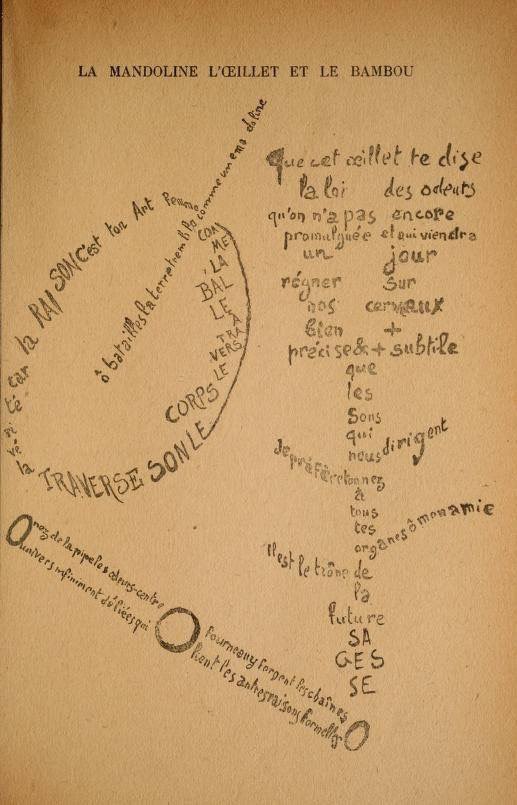 LA MANDOLINE L'ŒILLET ET LE BAMBOU
ô batailles la terre tremble comme une mandoline
COM
ME
LA
BAL
LE
À
TRA
VERS
LE
CORPS
LE SON TRAVERSE
la vérité car la RAISON c'est ton Art Femme
Que cet œillet te dise
la loi des odeurs
qu'on n'a pas encore
promulguée et qui viendra
un jour
régner sur
nos cerveaux
bien +
précise & + subtile
que
les
sons
qui
nous dirigent
Je préfère ton nez
à
tous
tes
organes ô mon amie
Il est le trône de
la
future
SA
GES
SE
O nez de la pipe les odeurs-centre O fourneau y forgent les chaînes O
univers infiniment déliées qui lient les autres raisons formelles